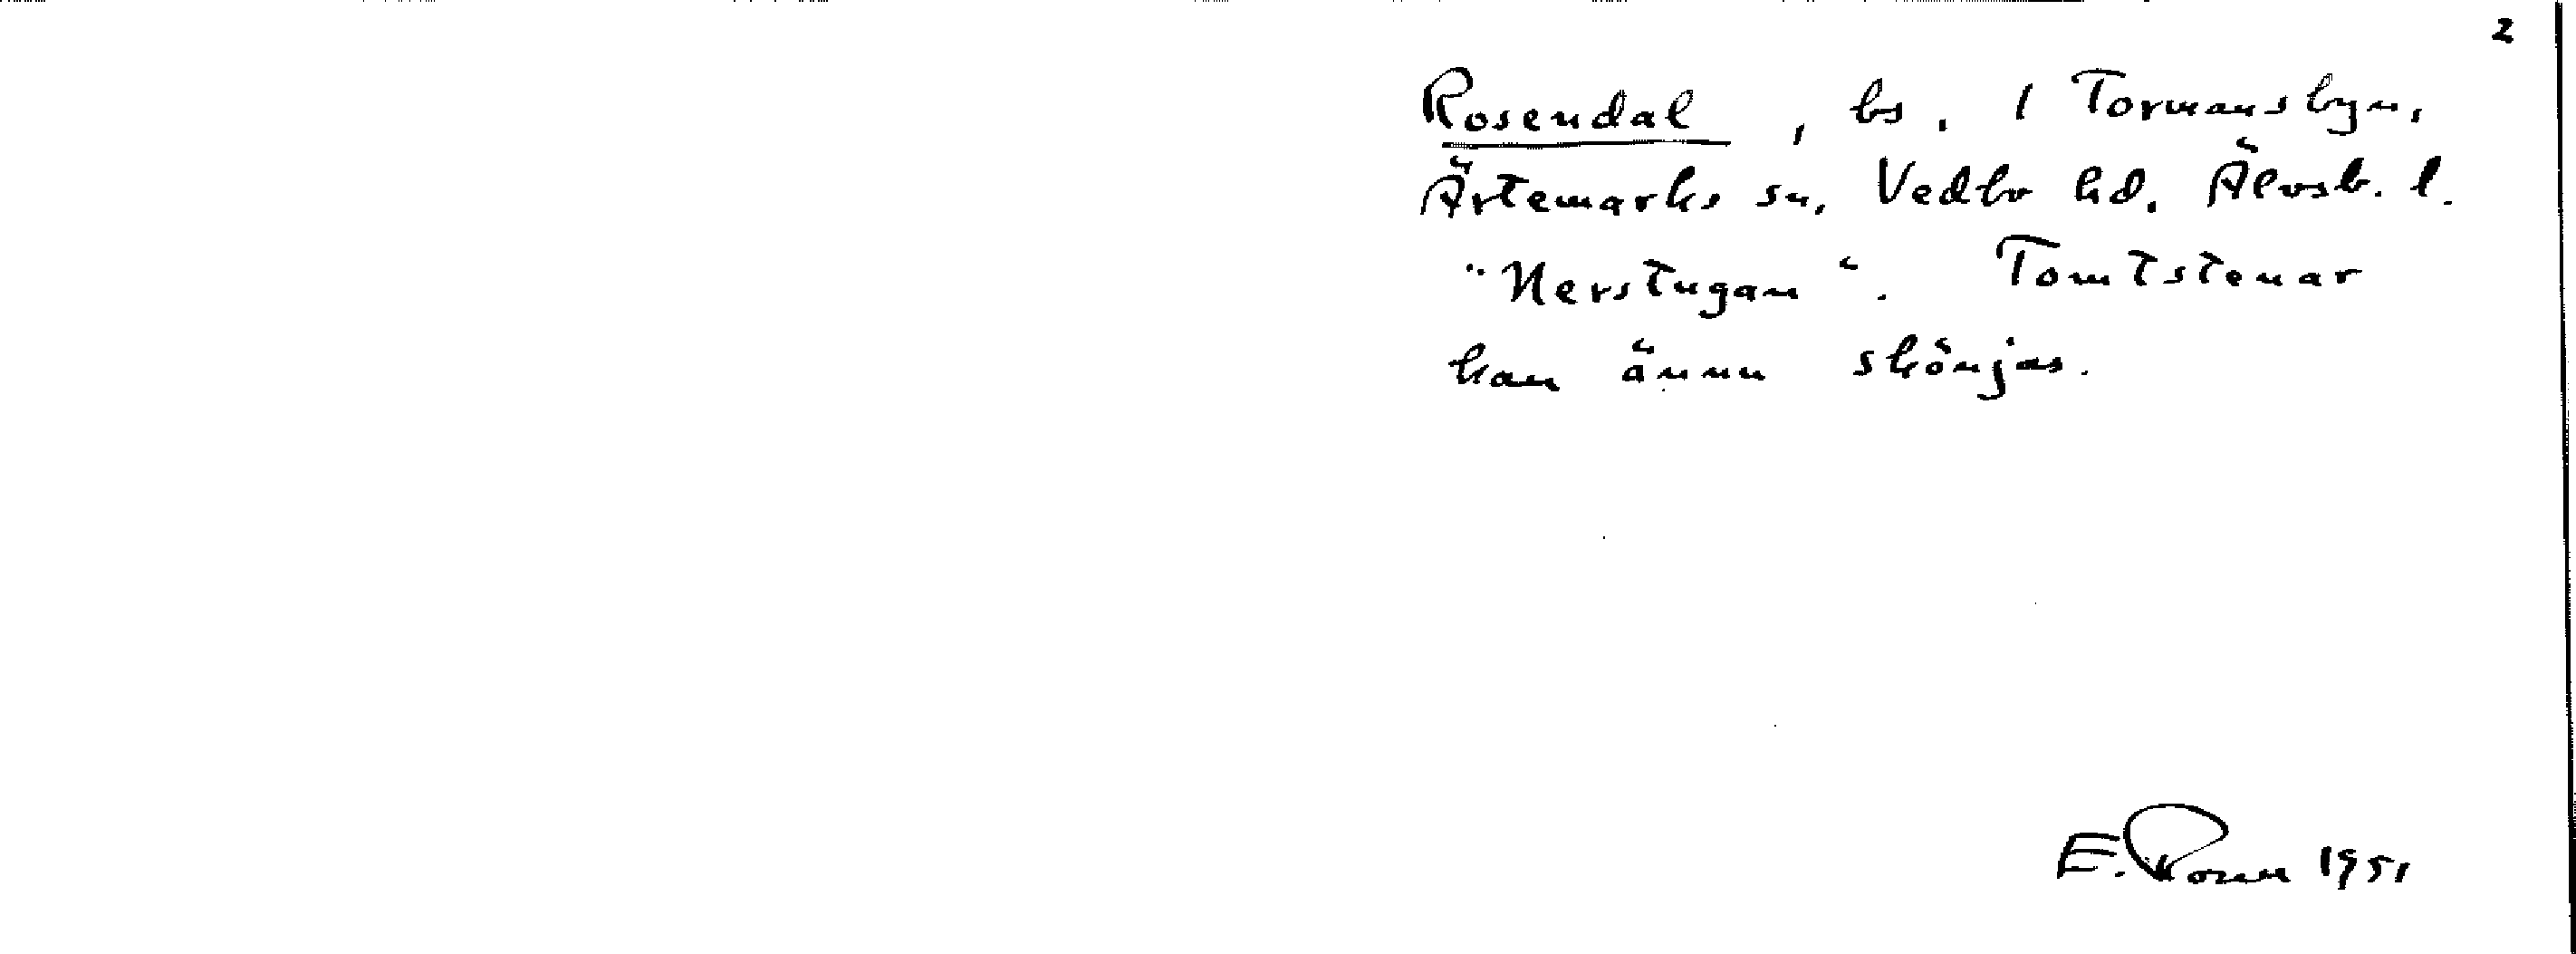 2
Rosendal, bs. 1 Tormansbyn,
Ärtemarks sn, Vedbo hd. Älvsb. l.
"Nerstugan". Tomtstenar
kan ännu skönjas.
E. 1951